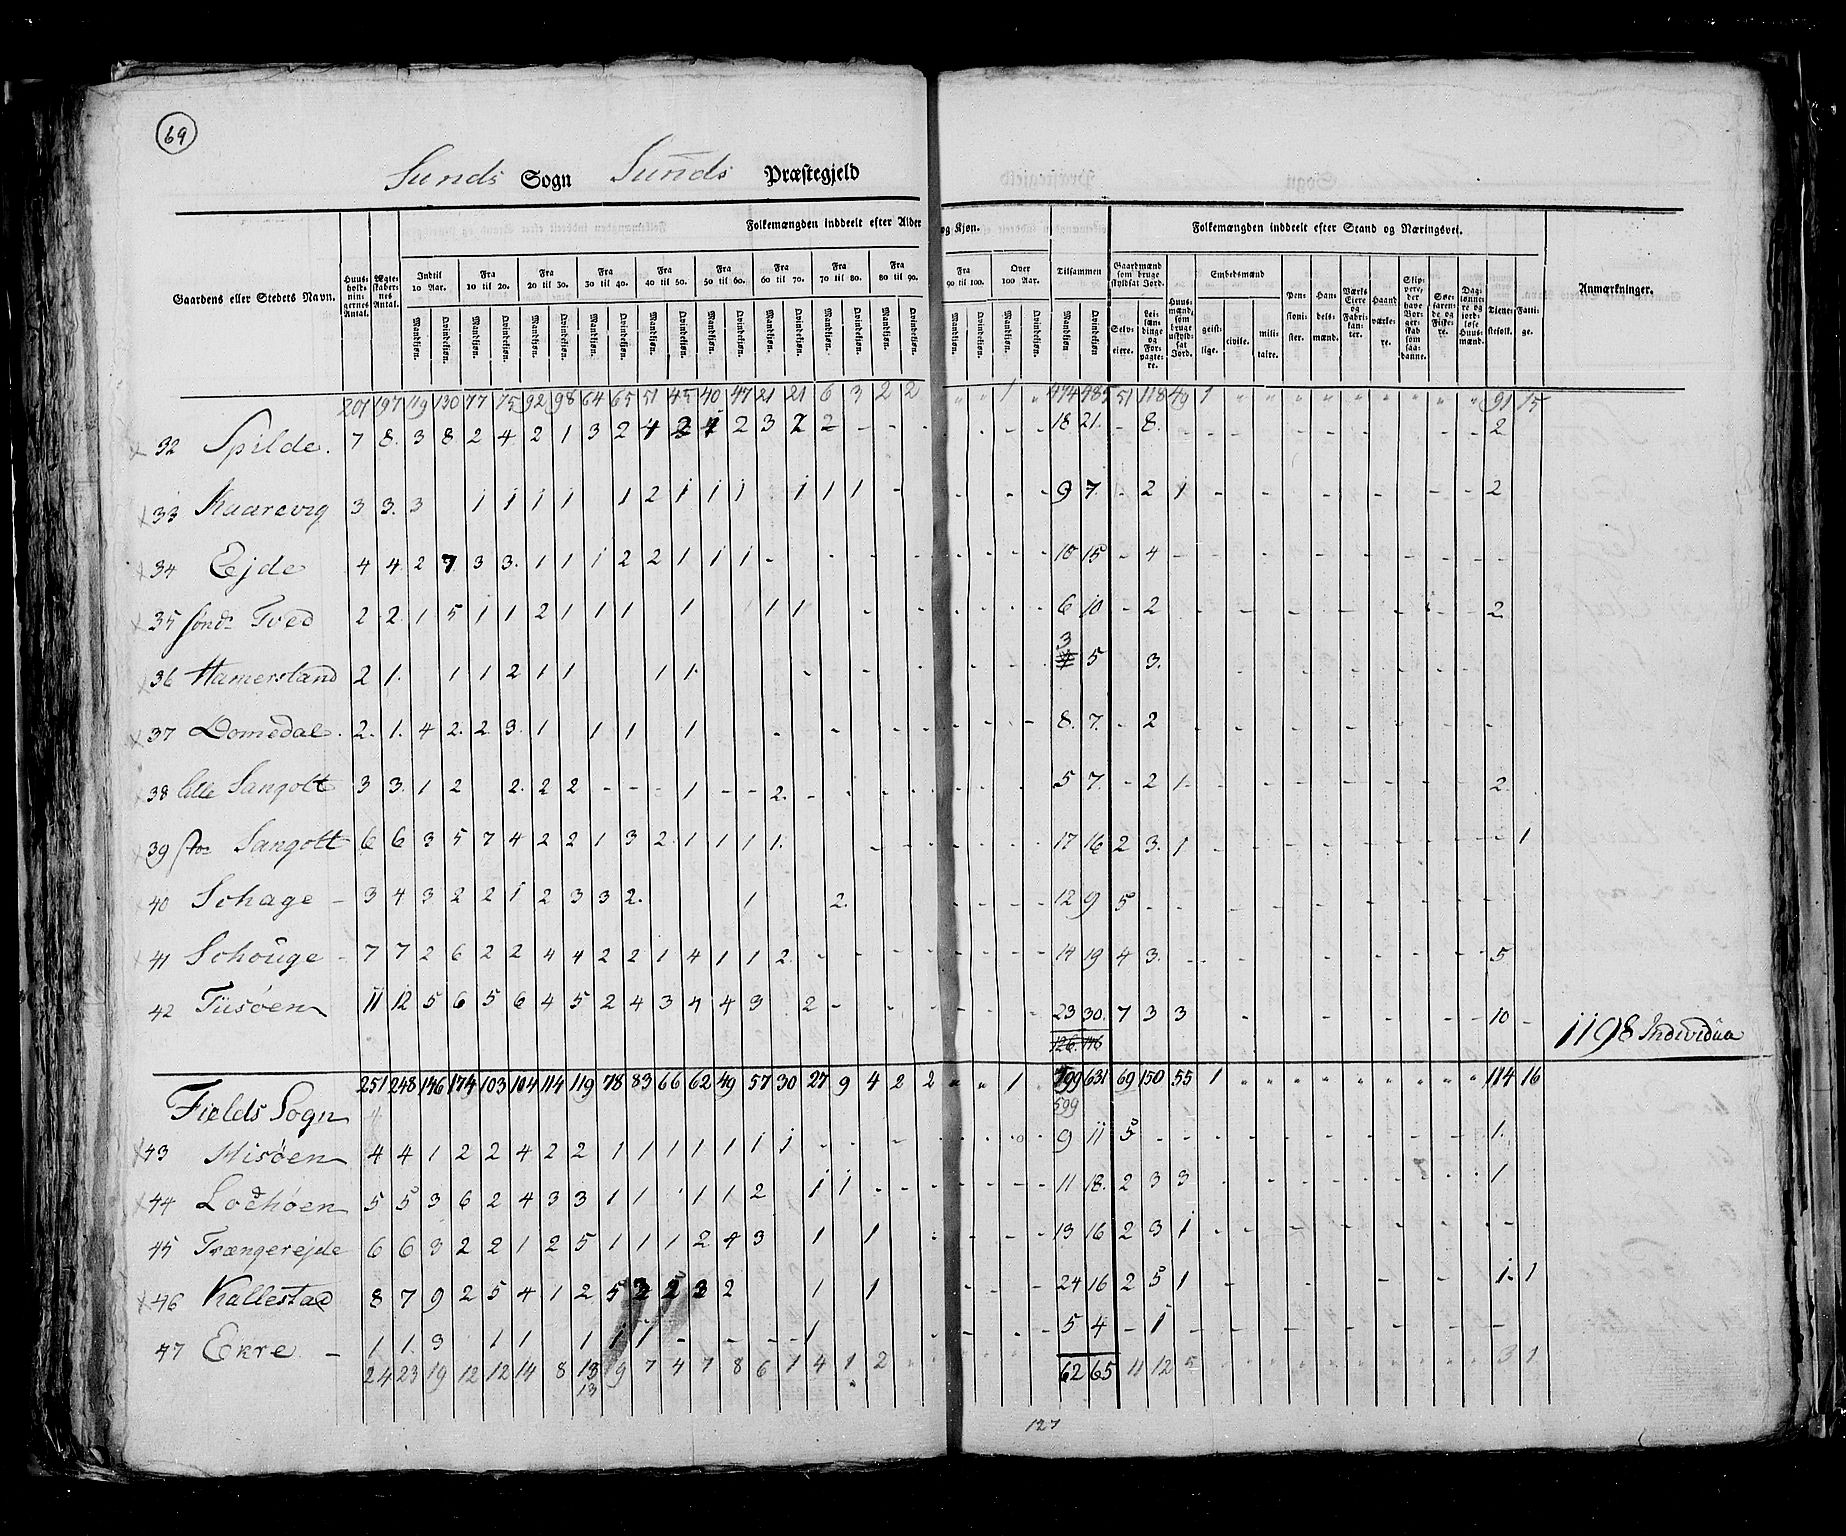 69
Sunds Sogn Sunds Præstegjeld
Folkemængden inddeelt efter Alder og Kjøn. Folkemængden inddeelt efter Stand og Næringsvei.
Gaardens eller Stedets Navn. Huus-hold-nin-gernes Antal. Ægte-skaber-nes Antal. Indtil 10 Aar. Fra 10 til 20. Fra 20 til 30. Fra 30 til 40. Fra 40 til 50. Fra 50 til 60. Fra 60 til 70. Fra 70 til 80. Fra 80 til 90. Fra 90 til 100. Over 100 Aar. Tilsammen Gaardmænd som bruge skyldsat Jord. Huus-mænd, som bruge uskyld-sat Jord. Embedsmænd Pen-sioni-ster. Han-dels-mænd. Værks Eiere og Fabri-kan-ter. Haand værke-re. Skip-pere, der have Bor-ger-skab som saa-danne. Søe-faren-de og Fiske-re. Dag-lønne-re og jord-løse Huus-mænd. Tiene-stefolk. Fatti-ge. Anmærkninger.
Mandkjøn. Qvindekjøn. Mandkjøn. Qvindekjøn. Mandkjøn. Qvindekjøn. Mandkjøn. Qvindekjøn. Mandkjøn. Qvindekjøn. Mandkjøn. Qvindekjøn. Mandkjøn. Qvindekjøn. Mandkjøn. Qvindekjøn. Mandkjøn. Qvindekjøn. Mandkjøn. Qvindekjøn. Mandkjøn. Qvindekjøn. Mandkjøn. Qvindekjøn. Selv-eiere. Lei-læn-dinge og For-pagte-re. geist-lige. civile. mili-taire.
207 197 119 130 77 75 92 98 64 65 51 45 40 47 21 21 6 3 2 2 " " 1 " 474 485 51 118 49 1 " " " " " " " " " 91 15
32 Spilde. 7 8. 3 8 2 4 2 1 3 2 4 2 1 2 3 2 2 - - - - - - - 18 21. - 8. - - - - - - - - - - - 2
33 Kaarevig 3 3. 3 1 1 1 1 1 2 1 1 1 1 1 1 - - - - 9 7. - 2 1 - - - - - - - - - 2
34 Ejde 4 4 2 7 3 3. 1 1 1 2 2 1 1 1 - - - - - - - - 10 15 - 4 - - - - - - - - - - -
35 sønd: Tved 2 2. 1 5 1 1 2 1 1 1 1 1 1 - - - - - - 6 10 - 2 - - - - - - - - - 2
3
36 Hamersland 2 1. 1 1 2 1 1 1 1. - - - - - - 4 5 3. - - - - - - - - - -
37 Domedal. 2. 1. 4 2. 2 3. 1 1 1 1 - - - - - - 8. 7. - 2 - - - - - - - - - -
38 lille Sangolt 3 3. 1 2 2. 2 2 - - - 1 - - 2. - - - - - - - 5 7. - 2 1. - - - - - - - - - 2.
39 stor Sangolt 6 6 3 5 7 4 2 2 1 3 2. 1 1 1 1. - - - - - - - 17 16 2 3. 1 - - - - - - - - - - 1
40 Schage - 3 4 3 2 2 1 2 3 3 2. 1 2. - - - - 12 9 5 - - - - - - - - - - -
41 Schouge - 7 7 2 6 2 2 4 4 2 2 1 4 1 1 2. - - - - - - - - 14 19 4 3. - - - - - - - - - 5
42 Tüsøen 11 12 5 6 5 6 4 5 2 4 3 4 4 3 2 - - - - - - - 23 30. 7 3 3 - - - - - - 10 - 1198 Individua
126. 146
251 248 146 174 103 104 114 119 78 83 66 62 49 57 30 27 9 4 2 2 " " 1 799 631 69 150 55 1 " " " " " " " " " 114 16
Fields Sogn 599
43 Misøen 4 4 1 2 2 4 2 2 1 1 1 1 1 1 1 - - - - - - - 9 11 5 - - - - - - - - - - 1.
44 Lochøen 5 5 3 6 2 4 3 3 1 1 1 1 2 1 1 - - - - - - - 11 18. 2 3 3 - - - - - - - - - 1
45 Trængerejde 6 6 3 2 2 1 2 5 1 1 1 2 4 3 1 1 - - - - 13 16 2 3 1 - - - - - - - - - -
46 Kallestad 8 7 9 2 5 4 1 2 5 2 5 3 2 1 1 - - - 24 16 2 5 1 - - - - 1. 1
47 Ekre - 1 1. 3 1 1 1 1 1 - - - - 1 - - - - 5 4 - 1 - - - - - - - - - -
24 23 19 12 12 14 8 13 9 7 4 7 8 6 1 4 1 2 62 65 11 12 5 3 1
13
127